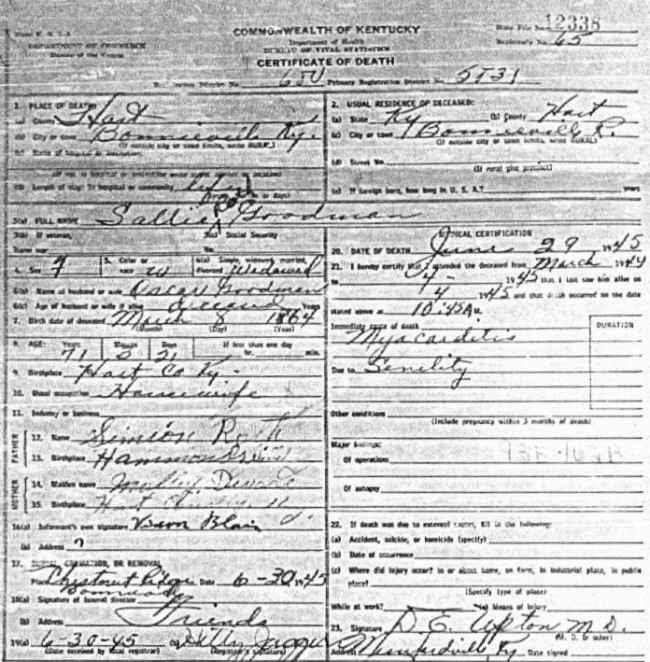 COMMONWEALTH OF KENTUCKY
State File No. 12338
DEPARTMENT OF COMMERCE
Department of Health
Bureau of the Census
BUREAU OF VITAL STATISTICS
Registrar's No. 65
CERTIFICATE OF DEATH
Registration District No. 650 Primary Registration District No. 5531
1. PLACE OF DEATH:
(a) County Hart
(b) City or town Bonnieville Ky.
(If outside city or town limits, write RURAL)
(c) Name of hospital or institution:
(d) Length of stay: In hospital or community life
3(a) FULL NAME Sallie Goodman
3(b) If veteran,
name war
3(c) Social Security
No.
4. Sex F
5. Color or race W
6(a) Single, widowed, married, divorced Widowed
6(b) Name of husband or wife Oscar Goodman
6(c) Age of husband or wife if alive deceased Years
7. Birth date of deceased March 8 1864
(Month) (Day) (Year)
8. AGE: Years Months Days If less than one day
71 3 21 hr. min.
9. Birthplace Hart Co Ky.
10. Usual occupation Housewife
11. Industry or business
FATHER
12. Name Simeon
13. Birthplace
MOTHER
14. Maiden name
15. Birthplace Hart
16(a) Informant's own signature Blair
(b) Address ?
17. BURIAL, CREMATION, OR REMOVAL
Place Chestnut Date 6-30 1945
18(a) Signature of funeral director
(b) Address Friends
19(a) 6-30-45
(Date received by local registrar) (Registrar's signature)
2. USUAL RESIDENCE OF DECEASED:
(a) State Ky (b) County Hart
(c) City or town Bonnieville R.
(If outside city or town limits, write RURAL)
(d) Street No.
(If rural give precinct)
(e) If foreign born, how long in U. S. A.? years
MEDICAL CERTIFICATION
20. DATE OF DEATH June 29 1945
21. I hereby certify that I attended the deceased from March 1944
to 4 1945 that I last saw him alive on
4 1945 and that death occurred on the date
stated above at 10:45 A M.
Immediate cause of death
DURATION
Myocarditis
Due to Senility
Other conditions
(Include pregnancy within 3 months of death)
Major findings:
Of operations
Of autopsy
22. If death was due to external causes, fill in the following:
(a) Accident, suicide, or homicide (specify)
(b) Date of occurrence
(c) Where did injury occur? in or about home, on farm, in industrial place, in public
place?
(Specify type of place)
While at work? (e) Means of injury
23. Signature D. E. Upton M.D.
(M. D. or other)
Address Munfordville Ky Date signed